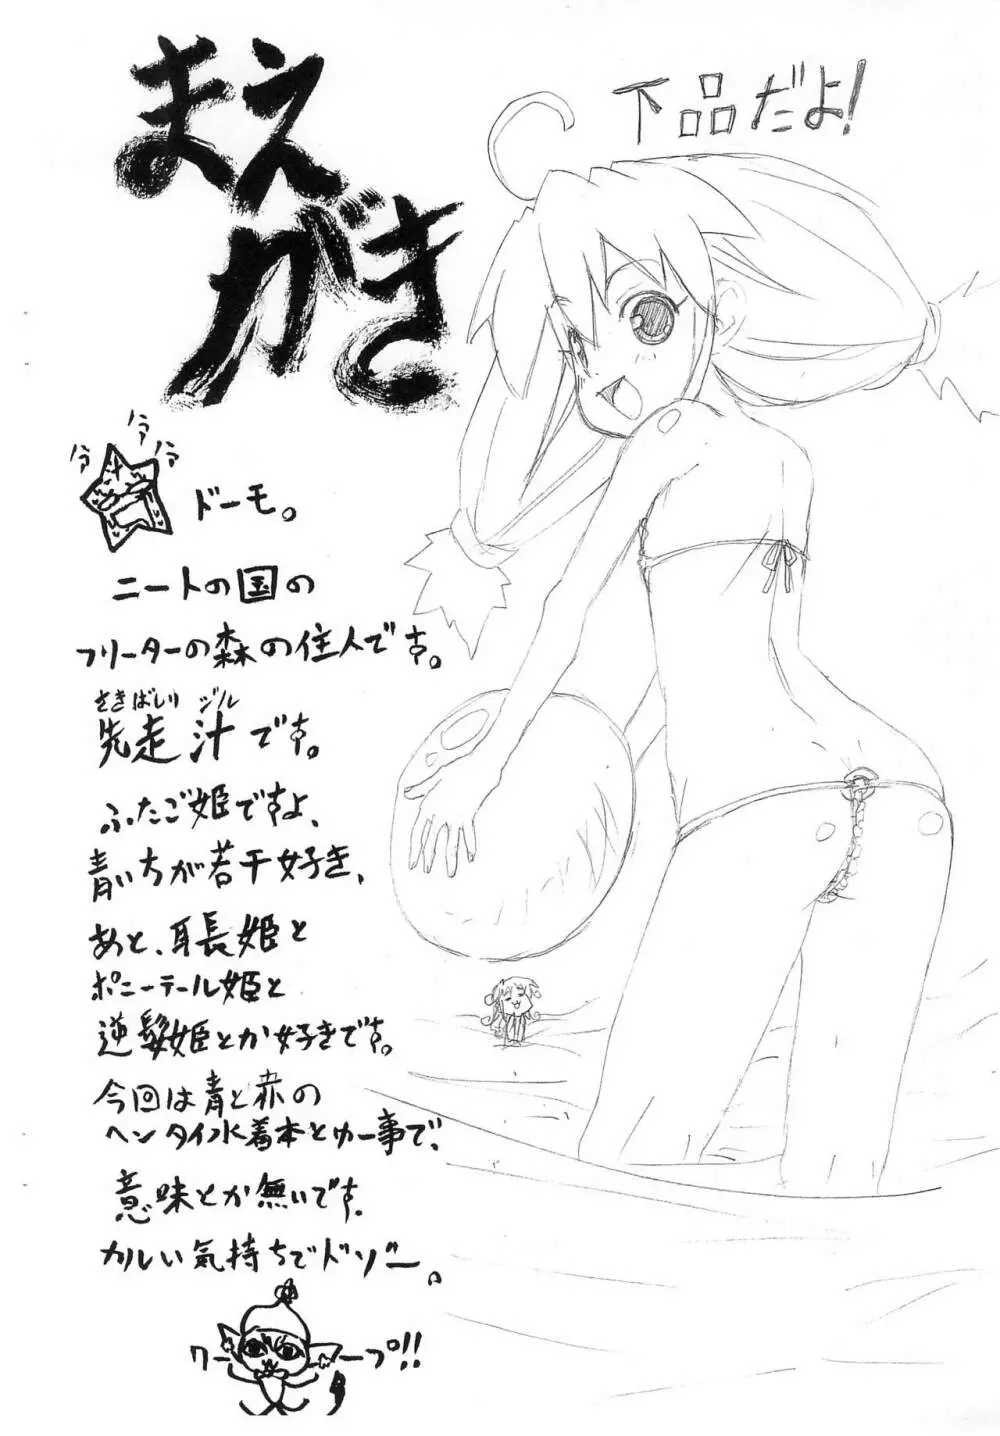 まえ
がき
下品だよ!
ドーモ。
ニートの国の
フリーターの森の住人です。
さきばしり ジル
先走 汁です。
ふたご姫ですよ、
青い方が若干好き、
あと、耳長姫と
ポニーテール姫と
逆髪姫とか好きです。
今回は青と赤の
ヘンタイ水着本とゆー事で、
意味とか無いです。
カルい気持ちでドゾー。
ワー
ープ!!